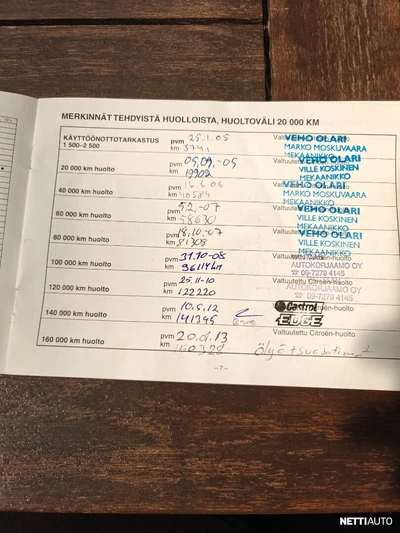 MERKINNÄT TEHDYISTÄ HUOLLOISTA, HUOLTOVÄLI 20 000 KM
KÄYTTÖÖNOTTOTARKASTUS pvm 25.1.05 VEHO OLARI
1 500–2 500 km MARKO MOSKUVAARA
MEKAANIKKO
20 000 km huolto pvm 05,09,-05 VEHO OLARI
km 19902 VILLE KOSKINEN
MEKAANIKKO
40 000 km huolto pvm 16.6.06 VEHO OLARI
km MARKO MOSKUVAARA
MEKAANIKKO
60 000 km huolto pvm 5.2.-07 VEHO OLARI
km 58630 VILLE KOSKINEN
MEKAANIKKO
80 000 km huolto pvm 18.10.-07 VEHO OLARI
km 81308 VILLE KOSKINEN
MEKAANIKKO
100 000 km huolto pvm 31.10-08 Citroën-huolto
km 96114 km AUTOKORJAAMO OY
☎ 09-7279 4145
120 000 km huolto pvm 25.11-10
km 122220 AUTOKORJAAMO OY
☎ 09-7279 4145
140 000 km huolto pvm 10.5.12 Castrol
km 141395 EDGE
Valtuutettu Citroën-huolto
160 000 km huolto pvm 13
km
-7-
NETTIAUTO